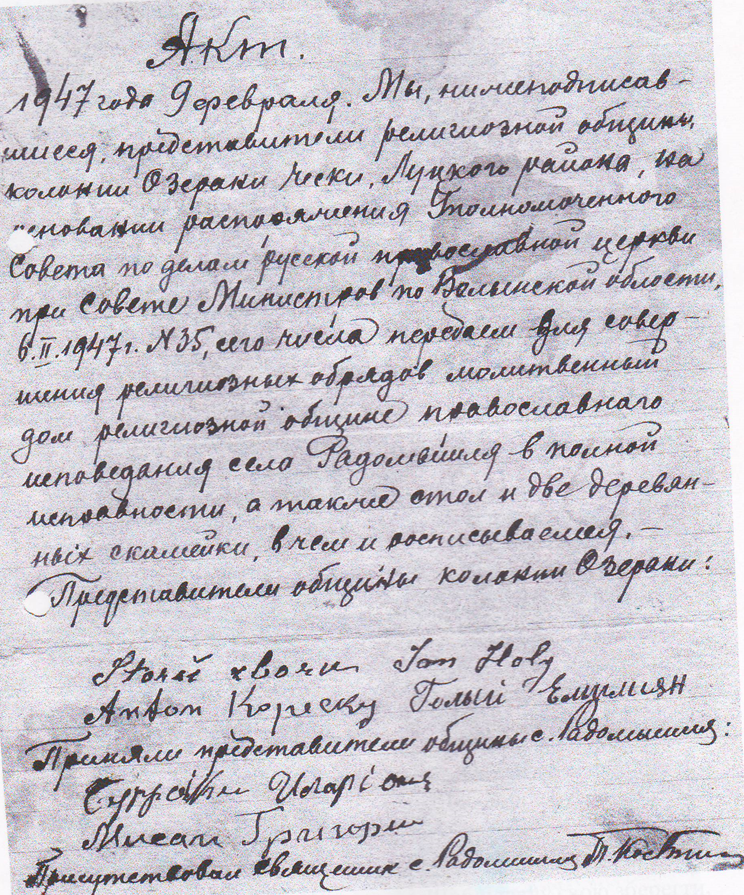 Акт.
1947 года 9 февраля. Мы, нижеподписав-
шиеся, представители религиозной общины,
колонии Озерани Чески, Луцкого района, на
основании распоряжения Уполномоченного
Совета по делам русской православной церкви
при Совете Министров по Волынской области,
6.II.1947г. N35, сего числа передаем для совер-
шения религиозных обрядов молитвенный
дом религиозной общине православнаго
исповедания села Радомышля в полной
исправности, а также стол и две деревян-
ных скамейки, в чем и росписываемся. –
Представители общины колонии Озерани:
Jan Holy
Anton Голый Емилиян
Приняли представители общины с. Радомышля:
Иларіон
Мисан Григорий
Присутствовал священик с. Радомышля П.